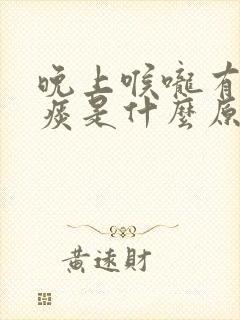 晚上喉嚨有
痰是什麼原
黃遠財